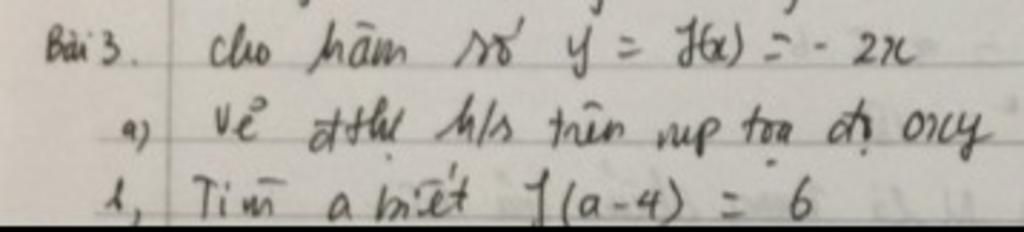 Bài 3. cho hàm số y = f(x) = - 2x
a) vẽ đthị h/s trên mp tọa độ oxy
b, Tìm a biết f(a-4) = 6